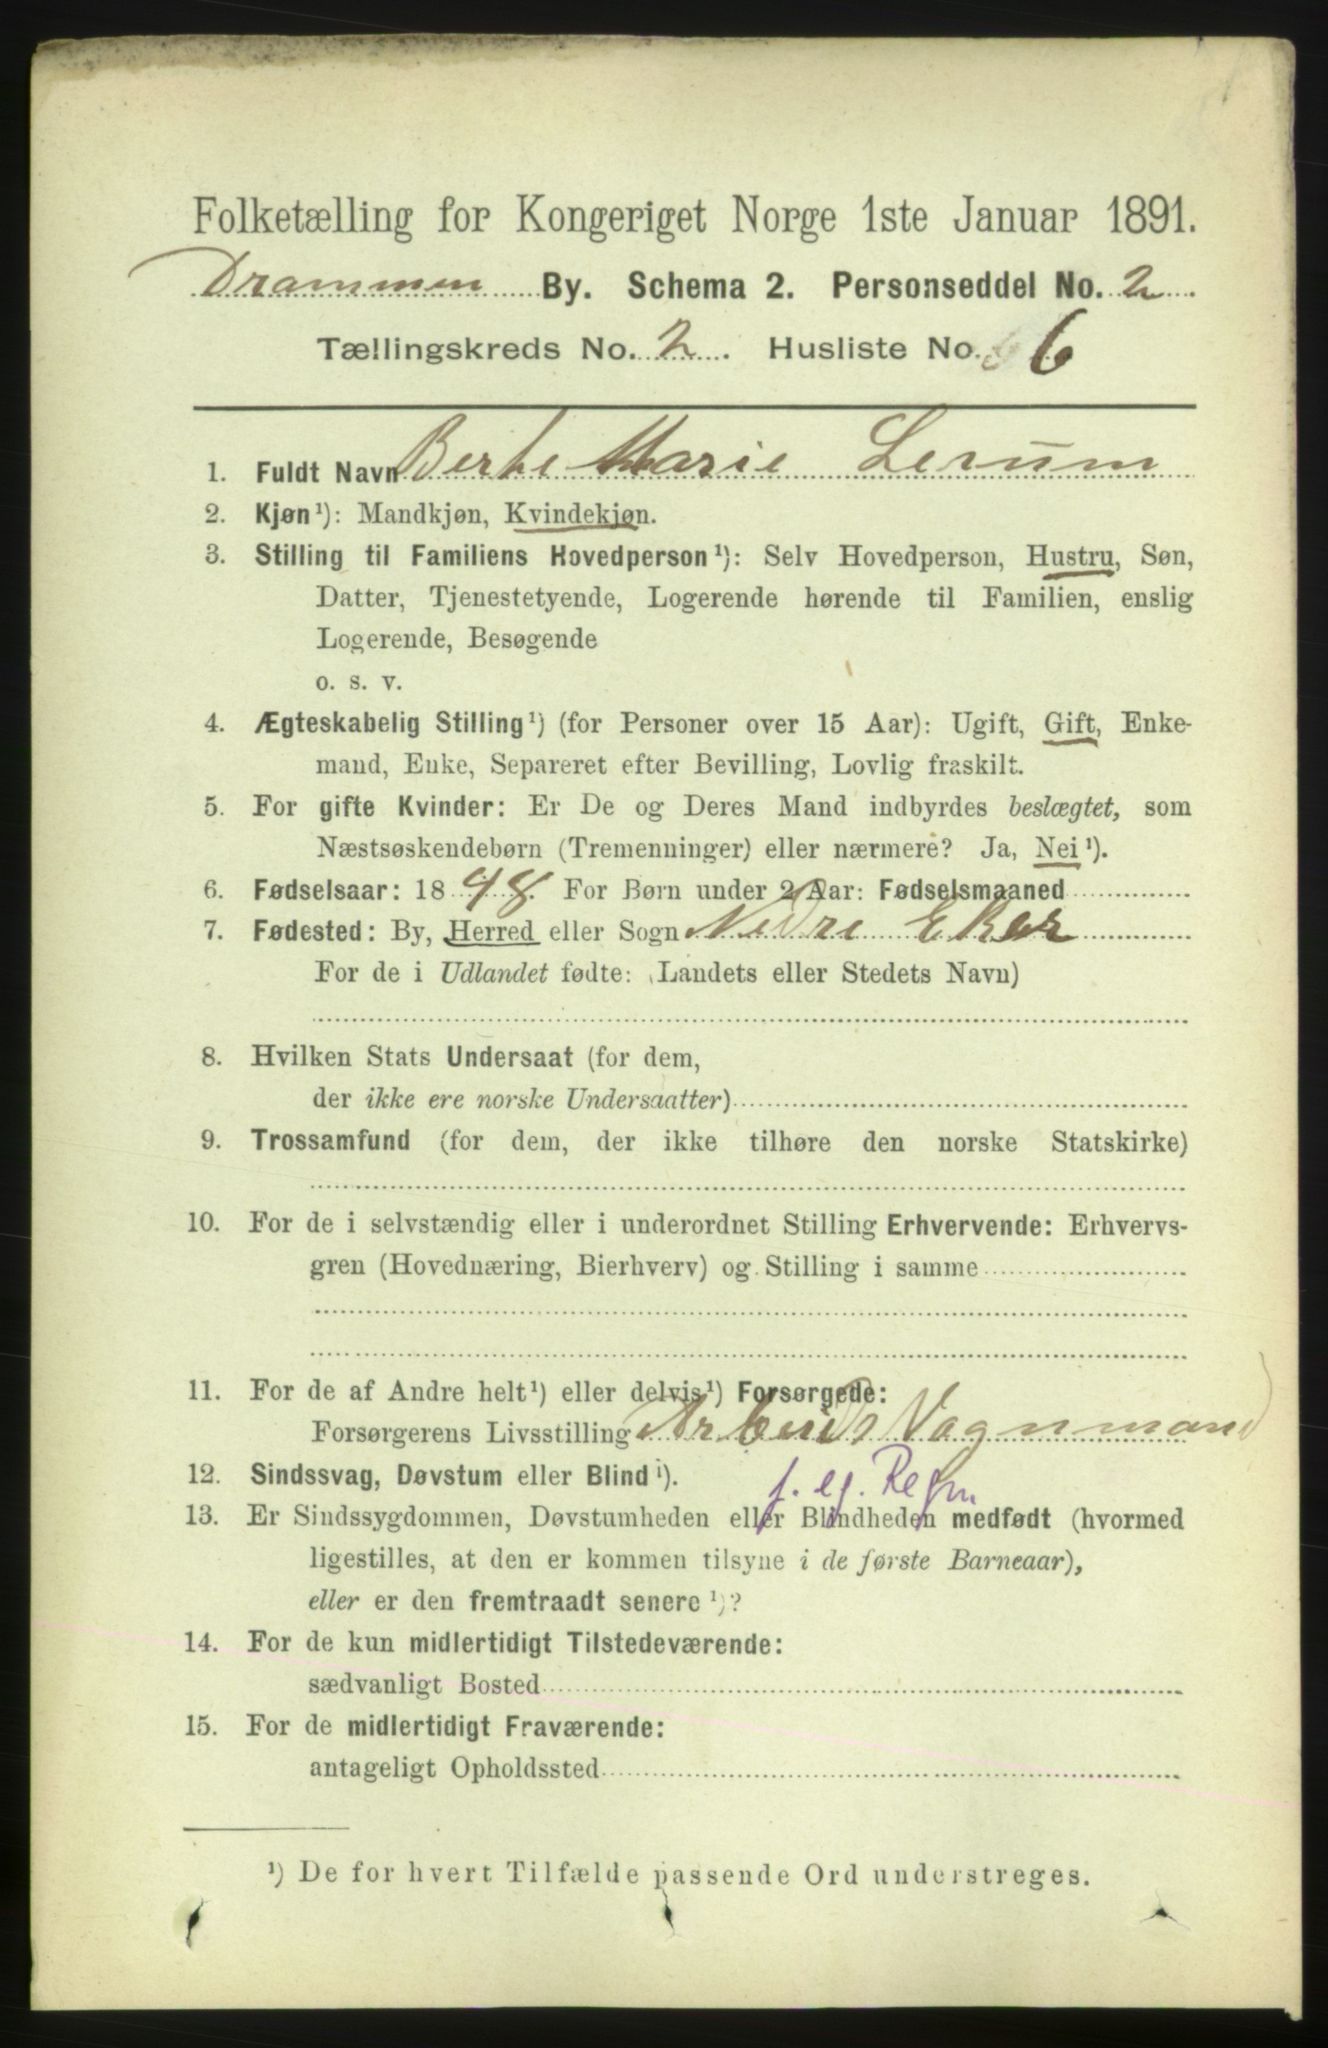 Folketælling for Kongeriget Norge 1ste Januar 1891.
Drammen By. Schema 2. Personseddel No. 2.
Tællingskreds No. 2. Husliste No. 6
1. Fuldt Navn Berte Marie Lerum
2. Kjøn¹): Mandkjøn, Kvindekjøn.
3. Stilling til Familiens Hovedperson¹): Selv Hovedperson, Hustru, Søn,
Datter, Tjenestetyende, Logerende hørende til Familien, enslig
Logerende, Besøgende
o. s. v.
4. Ægteskabelig Stilling¹) (for Personer over 15 Aar): Ugift, Gift, Enke-
mand, Enke, Separeret efter Bevilling, Lovlig fraskilt.
5. For gifte Kvinder: Er De og Deres Mand indbyrdes beslægtet, som
Næstsøskendebørn (Tremenninger) eller nærmere? Ja, Nei¹).
6. Fødselsaar: 1848. For Børn under 2 Aar: Fødselsmaaned
7. Fødested: By, Herred eller Sogn Nedre Eker
For de i Udlandet fødte: (Landets eller Stedets Navn)
8. Hvilken Stats Undersaat (for dem,
der ikke ere norske Undersaatter)
9. Trossamfund (for dem, der ikke tilhøre den norske Statskirke)
10. For de i selvstændig eller i underordnet Stilling Erhvervende: Erhvervs-
gren (Hovednæring, Bierhverv) og Stilling i samme
11. For de af Andre helt¹) eller delvis¹) Forsørgede:
Forsørgerens Livsstilling Arbeids Vognmand
f. eg. Regn
12. Sindssvag, Døvstum eller Blind¹).
13. Er Sindssygdommen, Døvstumheden eller Blindheden medfødt (hvormed
ligestilles, at den er kommen tilsyne i de første Barneaar),
eller er den fremtraadt senere¹)?
14. For de kun midlertidigt Tilstedeværende:
sædvanligt Bosted
15. For de midlertidigt Fraværende:
antageligt Opholdssted
¹) De for hvert Tilfælde passende Ord understreges.